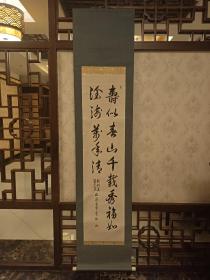 壽似春山千載秀福如
滄海萬年清